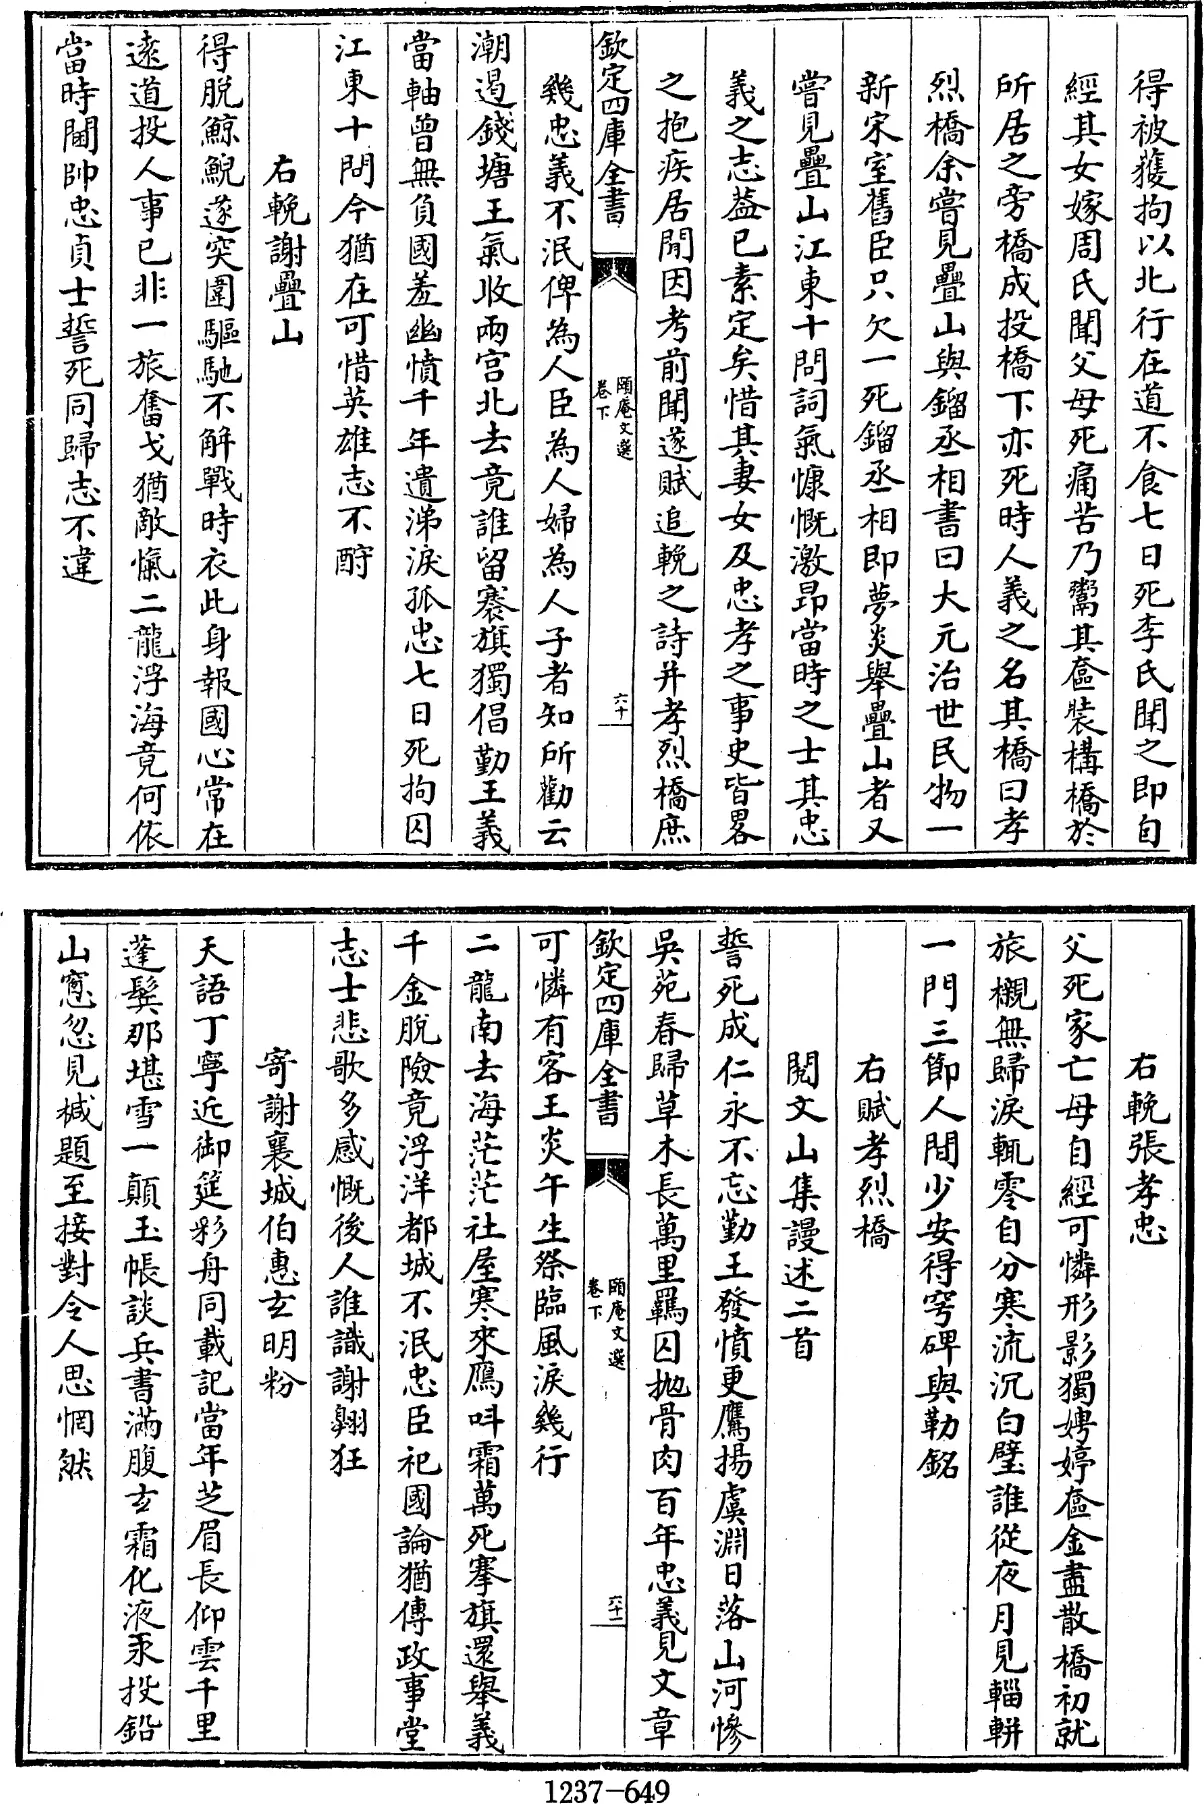 得被獲拘以北行在道不食七日死李氏聞之即自
經其女嫁周氏聞父母死痛苦乃鬻其奩裝構橋於
所居之旁橋成投橋下亦死時人義之名其橋曰孝
烈橋余嘗見疊山與鎦丞相書曰大元治世民物一
新宋室舊臣只欠一死鎦丞相即夢炎舉疊山者又
嘗見疊山江東十問詞氣慷慨激昂當時之士其忠
義之志葢已素定矣惜其妻女及忠孝之事史皆畧
之抱疾居閒因考前聞遂賦追輓之詩并孝烈橋庶
欽定四庫全書
頤庵文選
卷下
六十
幾忠義不泯俾為人臣為人婦為人子者知所勸云
潮遏錢塘王氣收兩宮北去竟誰留褰旗獨倡勤王義
當軸曾無負國羞幽憤千年遺涕淚孤忠七日死拘囚
江東十問今猶在可惜英雄志不酧
右輓謝疊山
得脱鯨鯢遂突圍驅馳不解戰時衣此身報國心常在
逺道投人事已非一旅奮戈猶敵愾二龍浮海竟何依
當時閫帥忠貞士誓死同歸志不違
右輓張孝忠
父死家亡母自經可憐形影獨娉婷奩金盡散橋初就
旅櫬無歸淚輒零自分寒流沉白璧誰從夜月見輜軿
一門三節人間少安得穹碑與勒銘
右賦孝烈橋
閱文山集謾述二首
誓死成仁永不忘勤王發憤更鷹揚虞淵日落山河慘
吳苑春歸草木長萬里羈囚抛骨肉百年忠義見文章
欽定四庫全書
頤庵文選
卷下
六十一
可憐有客王炎午生祭臨風淚幾行
二龍南去海茫茫社屋寒來鴈呌霜萬死搴旗還舉義
千金脫險竟浮洋都城不泯忠臣祀國論猶傳政事堂
志士悲歌多感慨後人誰識謝翱狂
寄謝襄城伯惠玄明粉
天語丁寧近御筵彩舟同載記當年芝眉長仰雲千里
蓬鬓那堪雪一顛玉帳談兵書滿腹玄霜化液汞投鉛
山窻忽見椷題至接對令人思惘然
1237-649